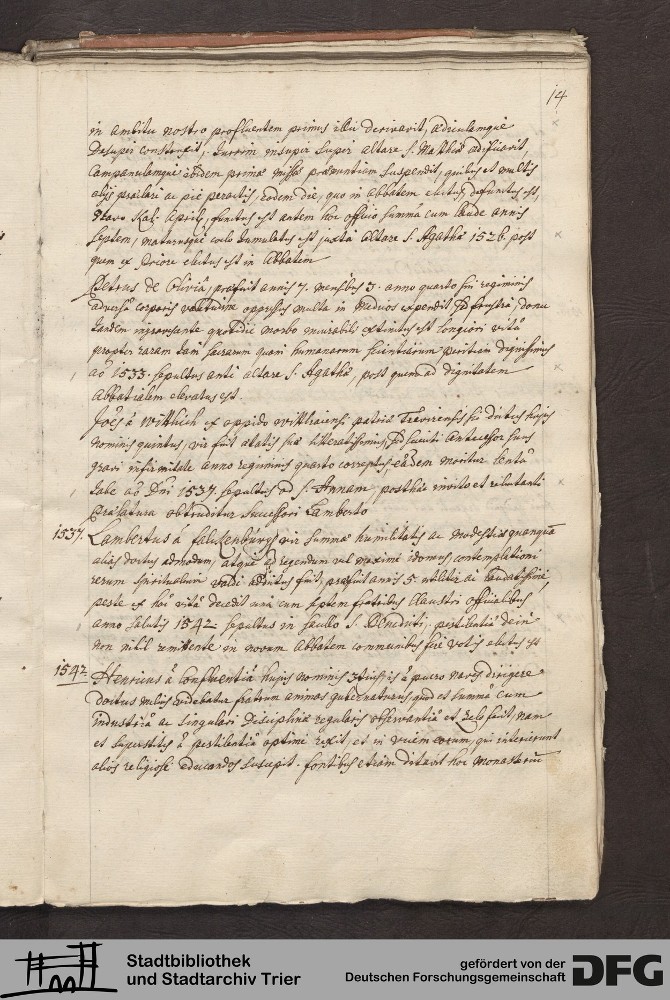 14
in ambitu nostro profluentem primus illic derivavit, ædiculamque
desuper construxit, Turrim insuper super altare S. Matthiæ ædificavit,
Campanulamque ibidem primæ missæ prænuntiam suspendit, quibus et multis
alijs præclare ac pie peractis, eodem die, quo in abbatem electus, defunctus est,
octavo Kal. Aprilis, functus est autem hoc officio summa cum laude annis
septem, maternoque coelo tumulatus est juxta altare S. Agathæ 1526. post
quem ex Priore electus est in Abbatem
Petrus de Olivia, præfuit annis 7. mensibus 3. anno quarto sui regiminis
adversa corporis valetudine oppressus multa in medicos expendit sed frustra, donec
tandem ingravescente quotidie morbo incurabili extinctus est longiori vita
propter raram tam sacrarum quam humanarum scientiarum peritiam dignissimus
aō 1533. sepultus ante altare S. Agathæ, post quem ad dignitatem
Abbatialem elevatus est.
Joēs à Wittlich ex oppido Wittliacensi patria Trevirensis sic dictus hujus
nominis quintus, vir fuit ætatis suæ litteratissimus, sed sicuti Antecessor suus
gravi infirmitate anno regiminis quarto correptus eadem moritur lenta
tabe aō Dni 1537. sepultus ad S. Annam posthæc invito et reluctanti
Prælatura obtruditur successori Lamberto
1537. Lambertus à falckenburg vir summæ humilitatis ac modestiæ quamquā
alias doctus admodum, atque ad regendum vel maxime idoneus, contemplationi
rerum spiritualium valde addictus fuit, præfuit annis 5. utiliter ac laudatissime,
peste ex hac vita decedit una cum septem fratribus Claustri officialibus
anno salutis 1542 sepultus in sacello S. Benedicti, pestilentia dein
non nihil remittente in novum Abbatem communibus fere votis electus est
1542 Henricus à Confluentia hujus nominis 3tius, is à puero naves dirigere
doctus melius credebatur fratrum animos gubernaturus, quod et summa cum
industria ac singulari disciplinæ regularis observantia et zelo fecit, nam
et superstites à pestilentia optime rexit, et in vicem eorum, qui interierunt
alios religiose educandos suscepit. fontibus etiam ditavit hoc monasteriū
Stadtbibliothek
und Stadtarchiv Trier
gefördert von der
Deutschen Forschungsgemeinschaft
DFG